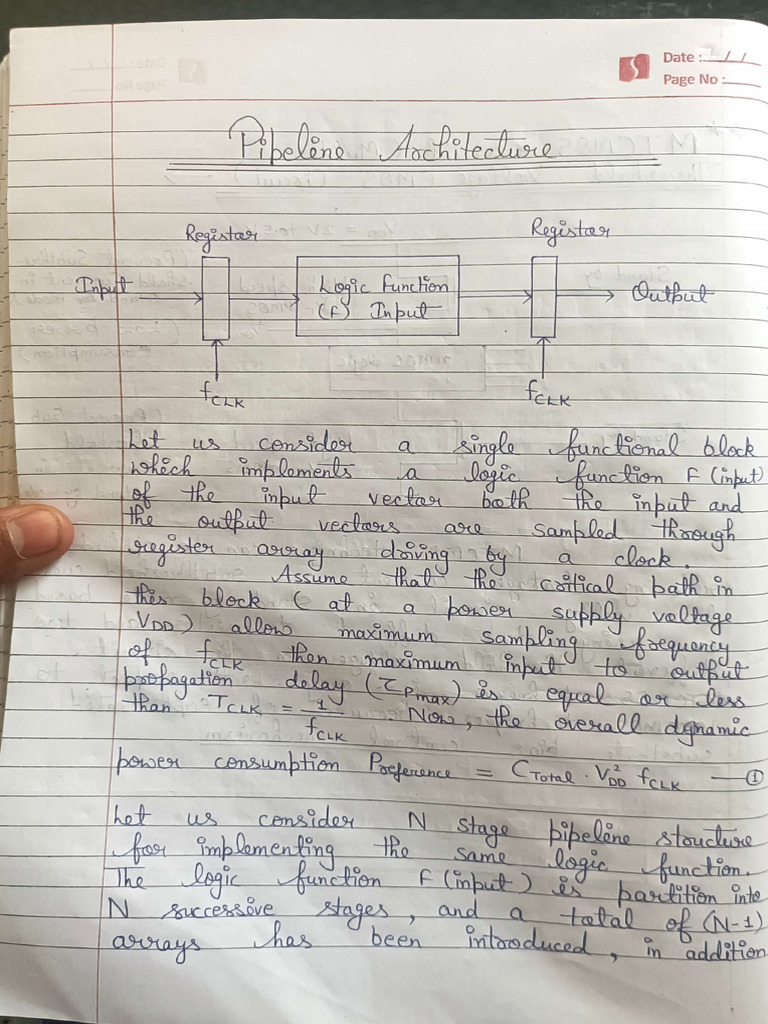 Date : / /
Page No :
Pipeline Architecture
Registar Registar
Input Logic Function Output
(F) Input
fCLK fCLK
Let us consider a single functional block
which implements a logic function F (input)
of the input vectar both the input and
the output vectars are sampled through
register array driving by a clock.
Assume that the critical path in
this block ( at a power supply voltage
VDD) allow maximum sampling frequency
of fCLK then maximum input to output
propagation delay (τPmax) is equal or less
than TCLK = 1/fCLK Now, the overall dynamic
power consumption Preference = CTotal · VDD² fCLK — ①
Let us consider N stage pipeline structure
for implementing the same logic function.
The logic function F (input) is partition into
N successive stages, and a total of (N-1)
arrays has been introduced, in addition